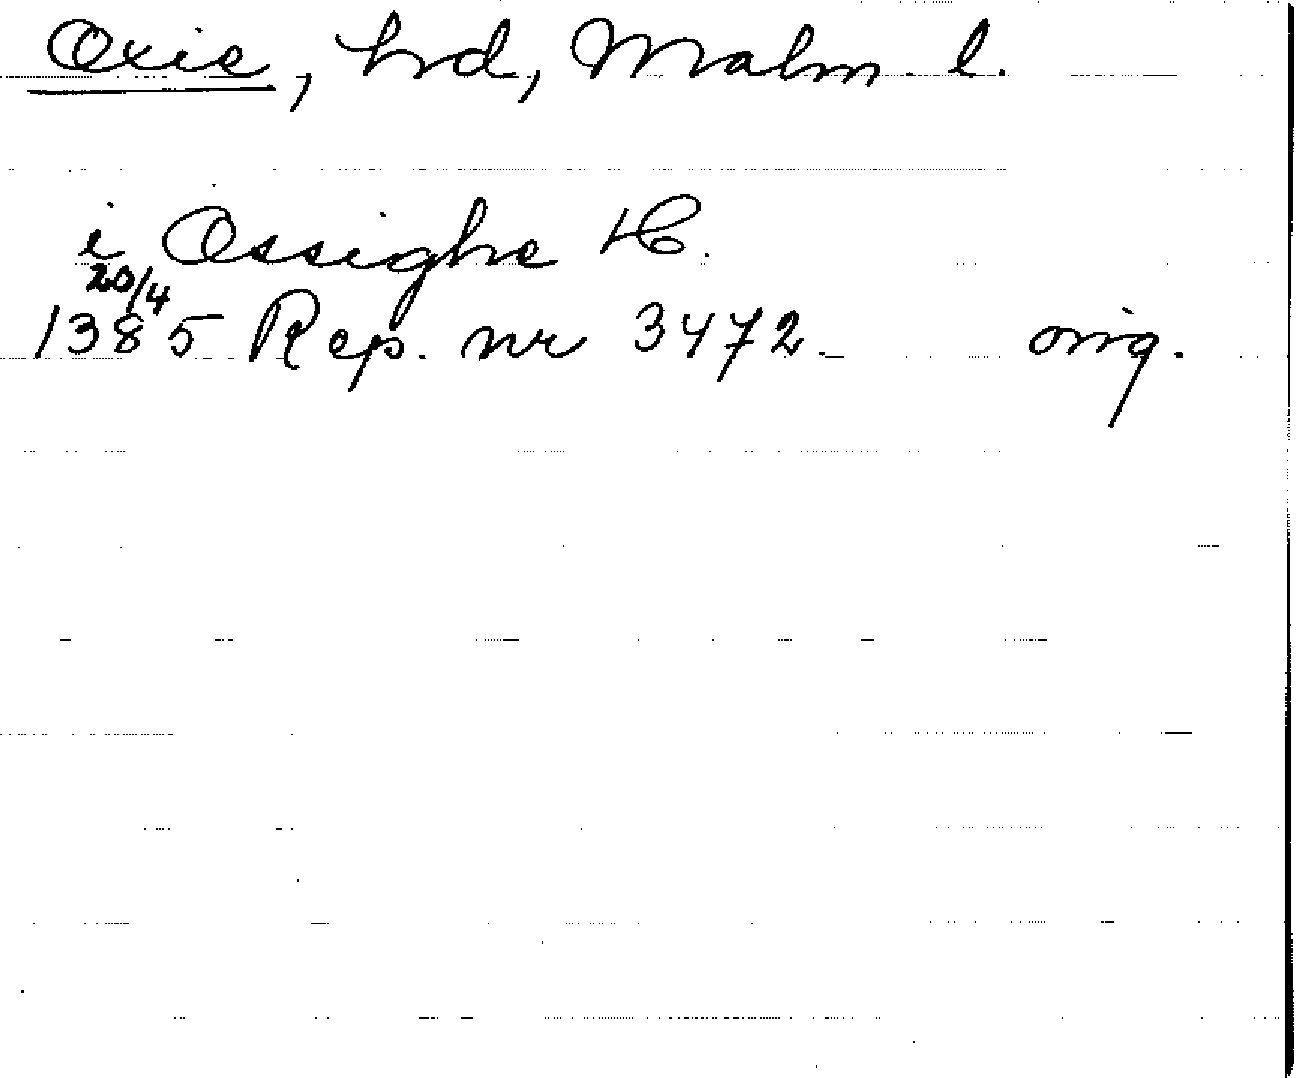 Oxie, hd, Malm. l.
i Ossighe H.
20/4
1385 Rep. nr 3472. orig.